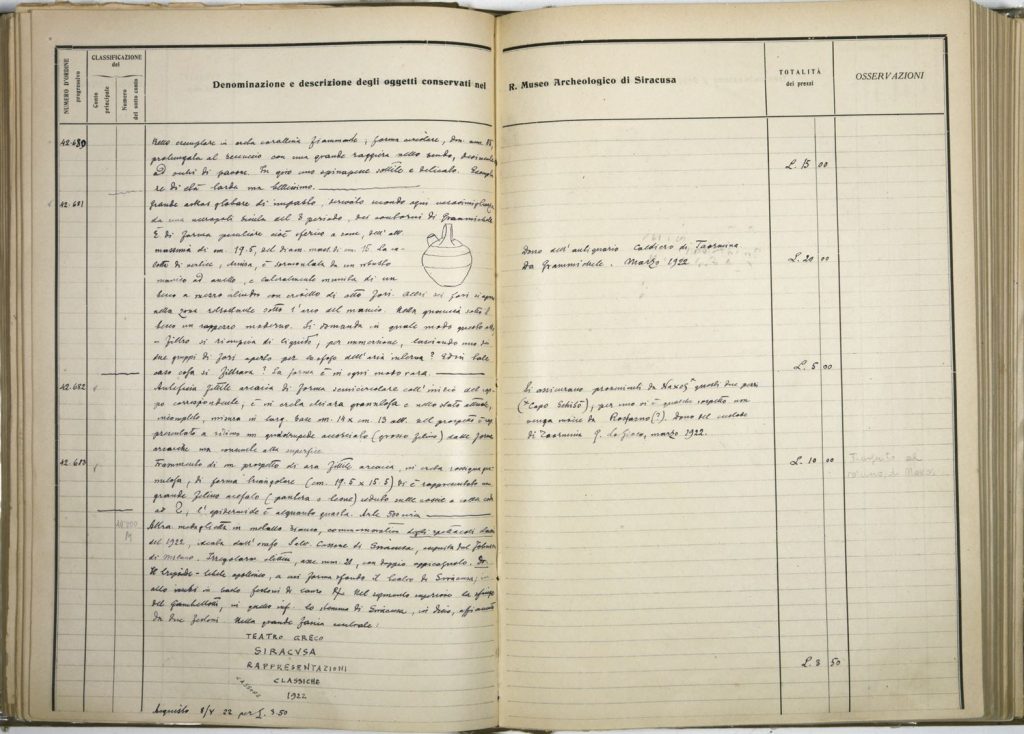 NUMERO D'ORDINE
progressivo
CLASSIFICAZIONE
del
Conto
principale
Numero
del sotto conto
Denominazione e descrizione degli oggetti conservati nel
R. Museo Archeologico di Siracusa
TOTALITÀ
dei prezzi
OSSERVAZIONI
42.680
esemplare in creta corallina fiammante, forma circolare, dm. mm. 85,
prolungata al con una grande raggiera nello
ad occhi di pavone. In giro una sottile e delicato. Esempla-
re di età tarda ma bellissimo.
L. 15 00
42.681
Grande askos globare di impasto, secondo ogni verosimiglianza
da una necropoli sicula del periodo, dei contorni di Grammichele
È di forma peculiare cioè sferico a cono, dell'alt.
massima di cm. 19.5, del diam. mass. di cm. 16. La ca-
lotta di vertice, chiusa, è sormontata da un robusto
manico ad anello, e lateralmente munita di un
becco a mezzo cilindro con crivello di otto fori. Altri sei fori si aprono
nella zona sotto l'arco del manico. Nella sotto il
becco un rappezzo moderno. Si domanda in quale modo questo
filtro si riempiva di liquido, per immersione, lasciando uno dei
due gruppi di fori aperto per lo sfogo dell'aria interna? Ed in tale
caso cosa si filtrava? La forma è in ogni modo rara.
Dono dell'antiquario Caldiero di Taormina
Da Grammichele. Marzo 1922
L. 20 00
42.682
Antefissa fittile arcaica di forma semicircolare coll'inizio del
po corrispondente, è in creta chiara granulosa e nello stato attuale,
incompleto, misura in larg. base cm. 14 x cm. 13 alt. Nel prospetto è rap-
presentato a rilievo un quadrupede accosciato (grosso felino) dalle forme
arcaiche ma consunte alla superficie.
Si assicurano provenienti da Naxos questi due pezzi
(Capo Schisò), per uno vi è qualche sospetto non
venga invece da Rosarno (?). Dono del custode
di Taormina marzo 1922.
L. 5 00
42.683
Frammento di un prospetto di ara fittile arcaica, in creta
mulosa, di forma triangolare (cm. 19.5 x 15.5) vi è rappresentato un
grande felino acefalo (pantera o leone) seduto sulle cosce e colla coda
ad S, l'epidermide è alquanto guasta. Arte Ionica
L. 10 00
Altra medaglietta in metallo bianco, commemorativa degli spettacoli classici
del 1922, ideata dall'orafo Salv. Cassone di Siracusa, eseguita dal Johnson
di Milano. Irregolare ellittica, asse mm. 28, con doppio appiccagnolo. Dr.
tripode-lebete apollineo, a cui forma sfondo il teatro di Siracusa; in
alto festoni di Nel segmento superiore la sfinge
del Gambellotti, in quello inf. lo stemma di Siracusa, in
da due festoni. Nella grande fascia centrale:
TEATRO GRECO
SIRACVSA
RAPPRESENTAZIONI
CLASSICHE
1922
Acquisto 8/V 22 per L. 3.50
L. 3 50